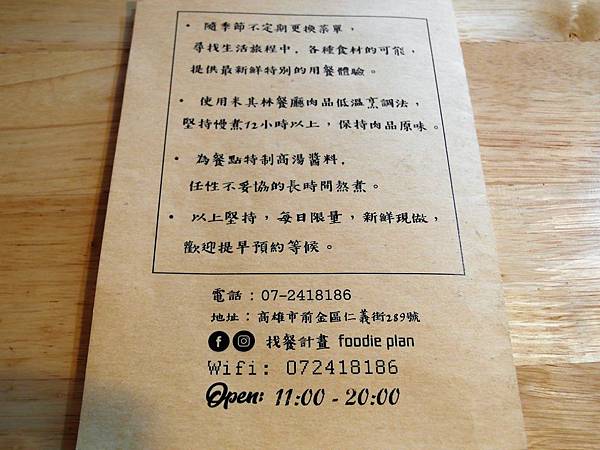 • 隨季節不定期更換菜單，
尋找生活旅程中，各種食材的可能，
提供最新鮮特別的用餐體驗。
• 使用米其林餐廳肉品低溫烹調法，
堅持慢煮12小時以上，保持肉品原味。
• 為餐點特制高湯醬料，
任性不妥協的長時間熬煮。
• 以上堅持，每日限量，新鮮現做，
歡迎提早預約等候。
電話：07-2418186
地址：高雄市前金區仁義街289號
找餐計畫 foodie plan
Wifi: 072418186
Open: 11:00 - 20:00